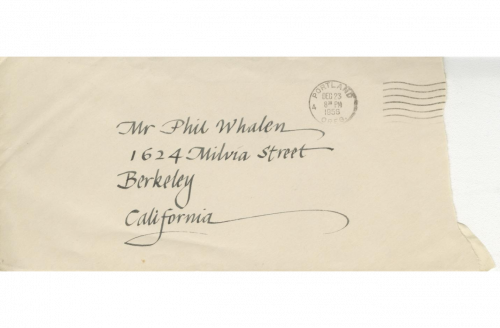 PORTLAND
DEC 23
PM
1955
Mr Phil Whalen
1624 Milvia Street
Berkeley
California